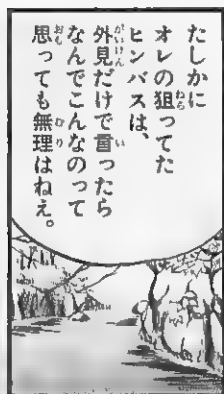 たしかに
オレの狙ってた
ヒンバスは、
外見だけで言ったら
なんでこんなのって
思っても無理はねえ。